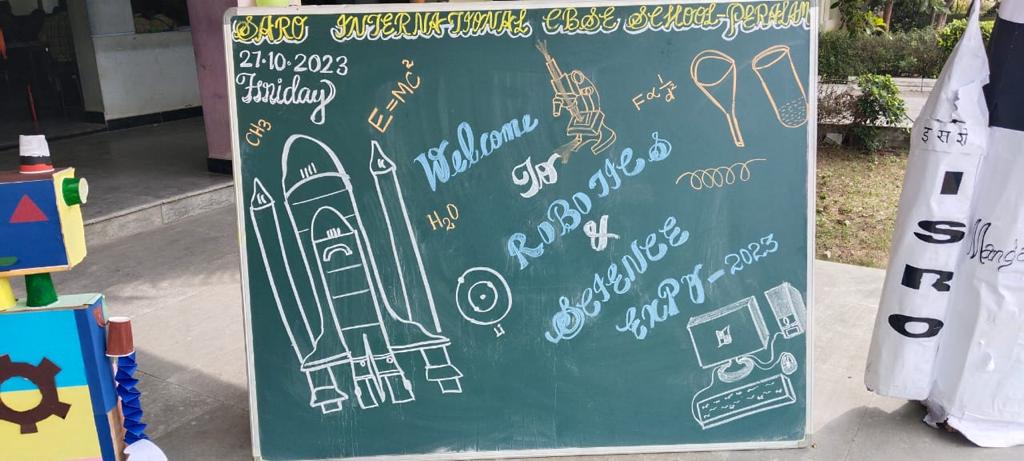 SARO INTERNATIONAL CBSE SCHOOL-PERALAM
27-10-2023
Friday
CH3
E=MC²
F∝1/d
Welcome
To
ROBOTICS
&
SCIENCE
EXPO-2023
H2O
Li
इसरो
ISRO